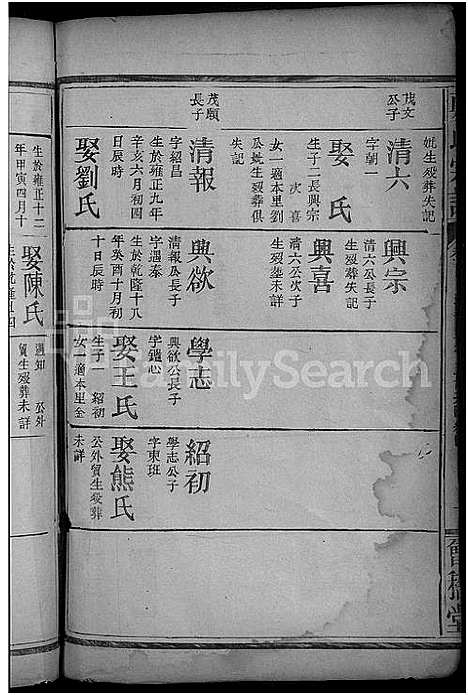 妣生殁葬失記
茂文
公子
清六
字朝一
娶　氏
生子二長興宗
次喜
女一適本里劉
公妣生殁葬俱
失記
茂願
長子
清報
字紹昌
生於雍正九年
辛亥六月初四
日辰時
娶劉氏
生於雍正十二
年甲寅四月十
興宗
清六公長子
生殁葬失記
興喜
清六公次子
生殁葬未詳
興欲
清報公長子
字遇泰
生於乾隆十八
年癸酉十月初
十日辰時
娶陳氏
學志
興欲公長子
字鑑心
娶王氏
生子一　紹初
女一適本里金
紹初
學志公子
字東班
娶熊氏
公外貿生殁葬
未詳
公外
貿生殁葬未詳
FamilySearch